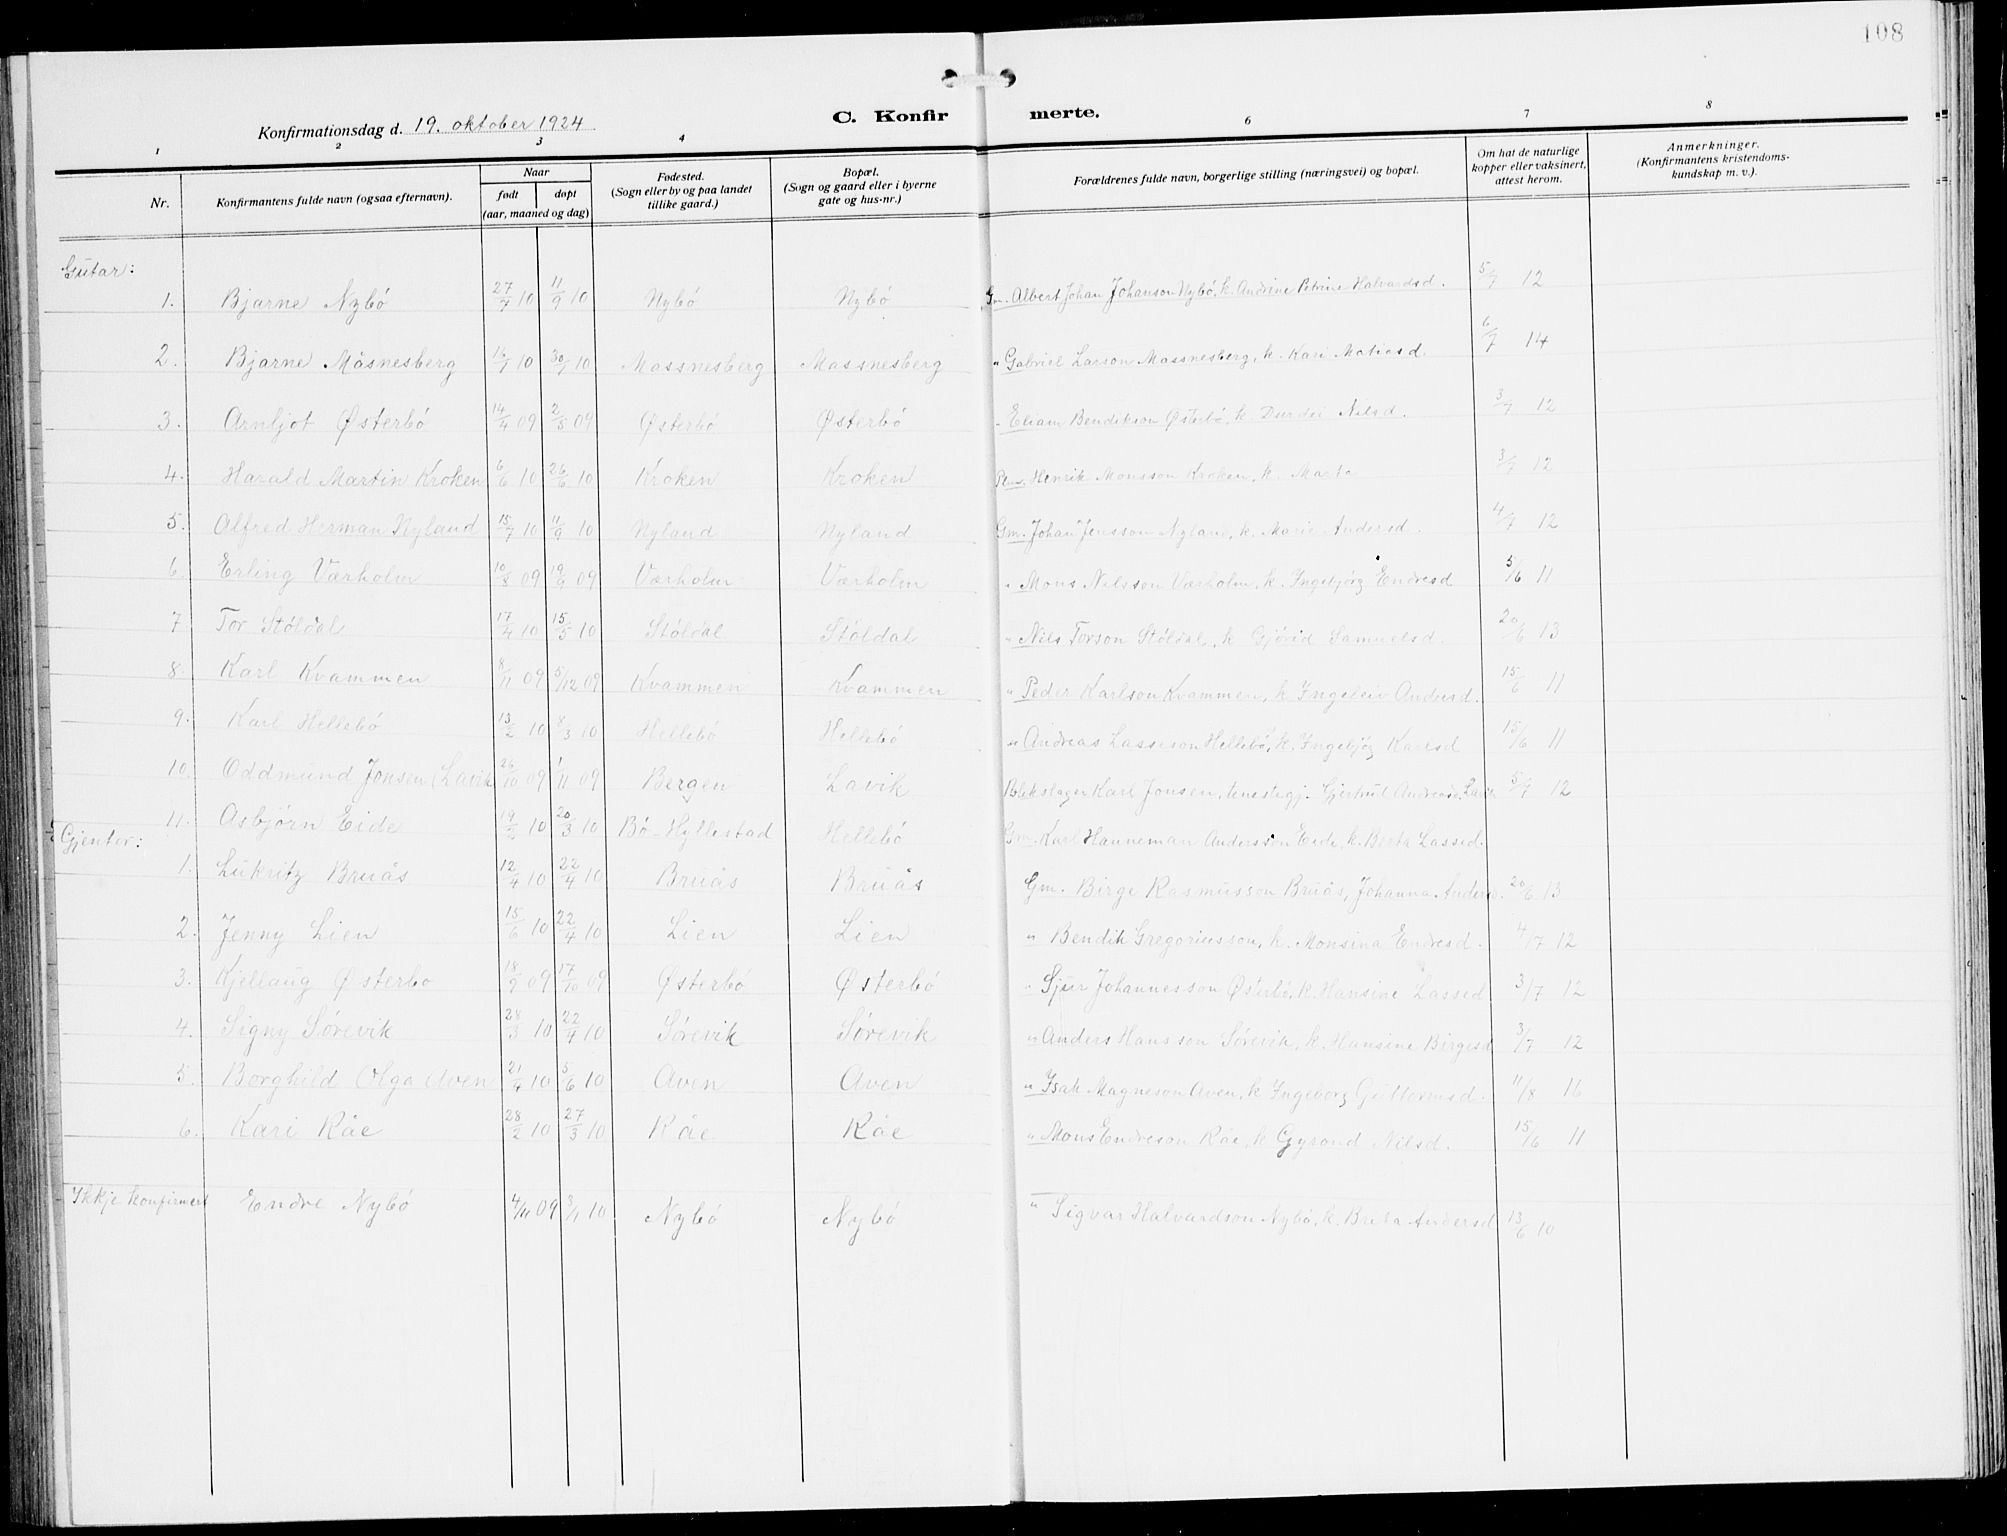 108
Konfirmationsdag d. 19. oktober 1924
C. Konfir merte.
1 2 3 4 6 7 8
Nr.
Konfirmantens fulde navn (ogsaa efternavn).
Naar
født døpt
(aar, maaned og dag)
Fødested.
(Sogn eller by og paa landet
tillike gaard.)
Bopæl.
(Sogn og gaard eller i byerne
gate og hus-nr.)
Forældrenes fulde navn, borgerlige stilling (næringsvei) og bopæl.
Om hat de naturlige
kopper eller vaksinert,
attest herom.
Anmerkninger.
(Konfirmantens kristendoms-
kundskap m. v.).
Gutar:
1. Bjarne Nybö 27/7 10 11/9 10 Nybö Nybö Gm. Albert Johan Johanson Nybö, k. Andrine Petrine Halvardsd. 5/7 12
2. Bjarne Måsnesberg 16/7 10 30/7 10 Massnesberg Massnesberg " Gabriel Larson Massnesberg, k. Kari Matiasd. 6/7 14
3. Arnljot Østerbö 14/4 09 2/5 09 Østerbö Østerbö " Eliam Bendikson Østerbö, k. Durdei Nilsd. 3/7 12
4. Harald Martin Kroken 6/6 10 26/6 10 Kroken Kroken Henrik Monsson Kroken, k. Marta 3/7 12
5. Alfred Herman Nyland 15/7 10 11/9 10 Nyland Nyland Gm. Johan Jensson Nyland, k. Marie Andersd. 4/7 12
6. Erling Værholm 10/8 09 19/9 09 Værholm Værholm " Mons Nilsson Værholm, k. Ingebjörg Endresd 5/6 11
7 Tor Stöldal 17/4 10 15/5 10 Stöldal Stöldal " Nils Torson Stöldal, k Gjörid Samuelsd. 20/6 13
8. Karl Kvammen 8/11 09 5/12 09 Kvammen Kvammen " Peder Karlson Kvammen, k Ingeleiv Andersd. 15/6 11
9. Karl Hellebö 13/2 10 8/3 10 Hellebö Hellebö " Andreas Lasseson Hellebö, k. Ingebjörg Karlsd 15/6 11
10. Oddmund Jonsen (Lavik 26/10 09 1/11 09 Bergen Lavik Blekslager Karl Jonsen, tenestegj. Gjertrud Andreasd. Lavik 5/7 12
11. Asbjörn Eide 19/2 10 20/3 10 Bö-Hyllestad Hellebö Gm. Karl Hanneman Andersson Eide, k. Berta Lassed.
Gjentor:
1. Lukritz Bruås 12/4 10 22/4 10 Bruås Bruås Gm. Birge Rasmusson Bruås, Johanna Andersd. 20/6 13
2. Jenny Lien 15/6 10 22/4 10 Lien Lien " Bendik Gregoriusson, k. Monsina Endresd. 4/7 12
3. Kjellaug Østerbö 18/9 09 17/10 09 Østerbö Østerbö " Sjur Johannesson Østerbö, k. Hansine Lassed 3/7 12
4. Signy Sörevik 28/3 10 22/4 10 Sörevik Sörevik " Anders Hansson Sörevik, k. Hansine Birgesd 3/7 12
5. Borghild Olga Aven 21/4 10 5/6 10 Aven Aven " Isak Magneson Aven, k Ingeborg Guttormsd. 11/8 16
6. Kari Råe 28/2 10 27/3 10 Råe Råe " Mons Endreson Råe, k Gyrond Nilsd. 15/6 11
Ikkje konfirmert Endre Nybö 4/11 09 3/1 10 Nybö Nybö " Sigvar Halvardson Nybö, k. Breta Andersd 13/6 10